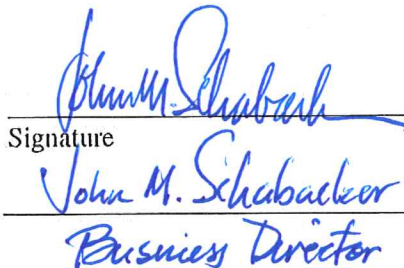 John M. Schabacker
Signature
John M. Schabacker
Business Director